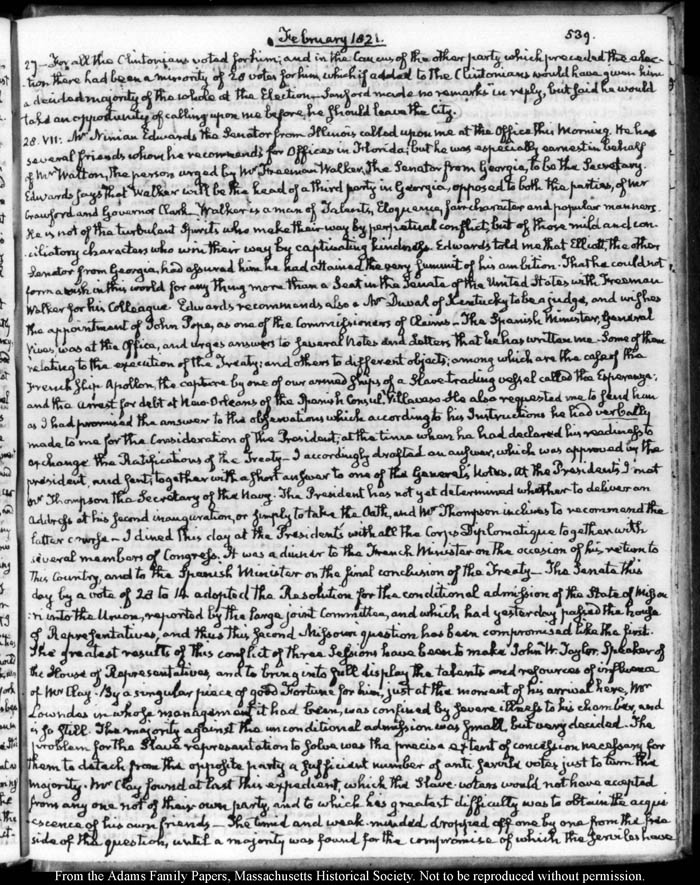 February 1821.
539.
27_ For all the Clintonians voted for him; and in the Caucus of the other party which preceded the elec-
tion there had been a minority of 28 votes for him, which if added to the Clintonians would have given him
a decided majority of the whole at the Election_ Sanford made no remarks in reply, but said he would
take an opportunity of calling upon me before he should leave the City.
28. VII. Mr Ninian Edwards the Senator from Illinois called upon me at the Office this Morning. He has
several friends whom he recommends for Offices in Florida; but he was especially earnest in behalf
of Mr Walton, the person urged by Mr Freeman Walker, the Senator from Georgia, to be the Secretary.
Edwards says that Walker will be the head of a third party in Georgia, opposed to both the parties, of Mr
Crawford and Governor Clark_ Walker is a man of Talents, Eloquence, fair character and popular manners.
He is not of the turbulent Spirits who make their way by perpetual conflict, but of those mild and con-
ciliatory characters who win their way by captivating kindness. Edwards told me that Elliott, the other
Senator from Georgia, had assured him he had attained the very summit of his ambition. That he could not
form a wish in this world for any thing more than a Seat in the Senate of the United States with Freeman
Walker for his Colleague. Edwards recommends also a Mr Duval of Kentucky to be a judge, and wishes
the appointment of John Pope, as one of the Commissioners of Claims_ The Spanish Minister, General
Vives, was at the Office, and urges answers to several Notes and Letters that he has written me. Some of them
relating to the execution of the Treaty; and others to different objects; among which are the cases of the
French Ship Apollon, the capture by one of our armed Ships of a Slave-trading vessel called the Esperanza;
and the arrest for debt at New-Orleans of the Spanish Consul, Villavaso. He also requested me to send him
as I had promised the answer to the observations which according to his Instructions he had verbally
made to me for the consideration of the President; at the time when he had declared his readiness to
exchange the Ratifications of the Treaty_ I accordingly drafted an answer, which was approved by the
president, and sent, together with a short answer to one of the General's Notes. At the President's I met
Mr Thompson the Secretary of the Navy. The President has not yet determined whether to deliver an
Address at his second inauguration, or simply to take the Oath, and Mr Thompson inclines to recommend the
latter course_ I dined this day at the President's with all the Corps Diplomatique together with
several members of Congress. It was a dinner to the French Minister on the occasion of his return to
this Country, and to the Spanish Minister on the final conclusion of the Treaty_ The Senate this
day by a vote of 28 to 14 adopted the Resolution for the conditional admission of the State of Missou-
ri into the Union, reported by the large joint Committee, and which had yesterday passed the house
of Representatives, and thus this second Missouri question has been compromised like the first.
The greatest results of this conflict of three Sessions have been to make John W. Taylor Speaker of
the House of Representatives, and to bring into full display the talents and resources of influence
of Mr Clay. By a singular piece of good Fortune for him, just at the moment of his arrival here, Mr
Lowndes in whose management it had been, was confined by severe illness to his chamber, and
is so still. The majority against the unconditional admission was small, but very decided. The
problem for the Slave representation to solve was the precise extent of concession necessary for
them to detach from the opposite party a sufficient number of anti servile votes just to turn the
majority. Mr Clay found at last this expedient, which the Slave-voters would not have accepted
from any one not of their own party, and to which his greatest difficulty was to obtain the acqui-
escence of his own friends_ The timid and weak-minded dropped off one by one from the free
side of the question, until a majority was found for the compromise of which the serviles have
From the Adams Family Papers, Massachusetts Historical Society. Not to be reproduced without permission.